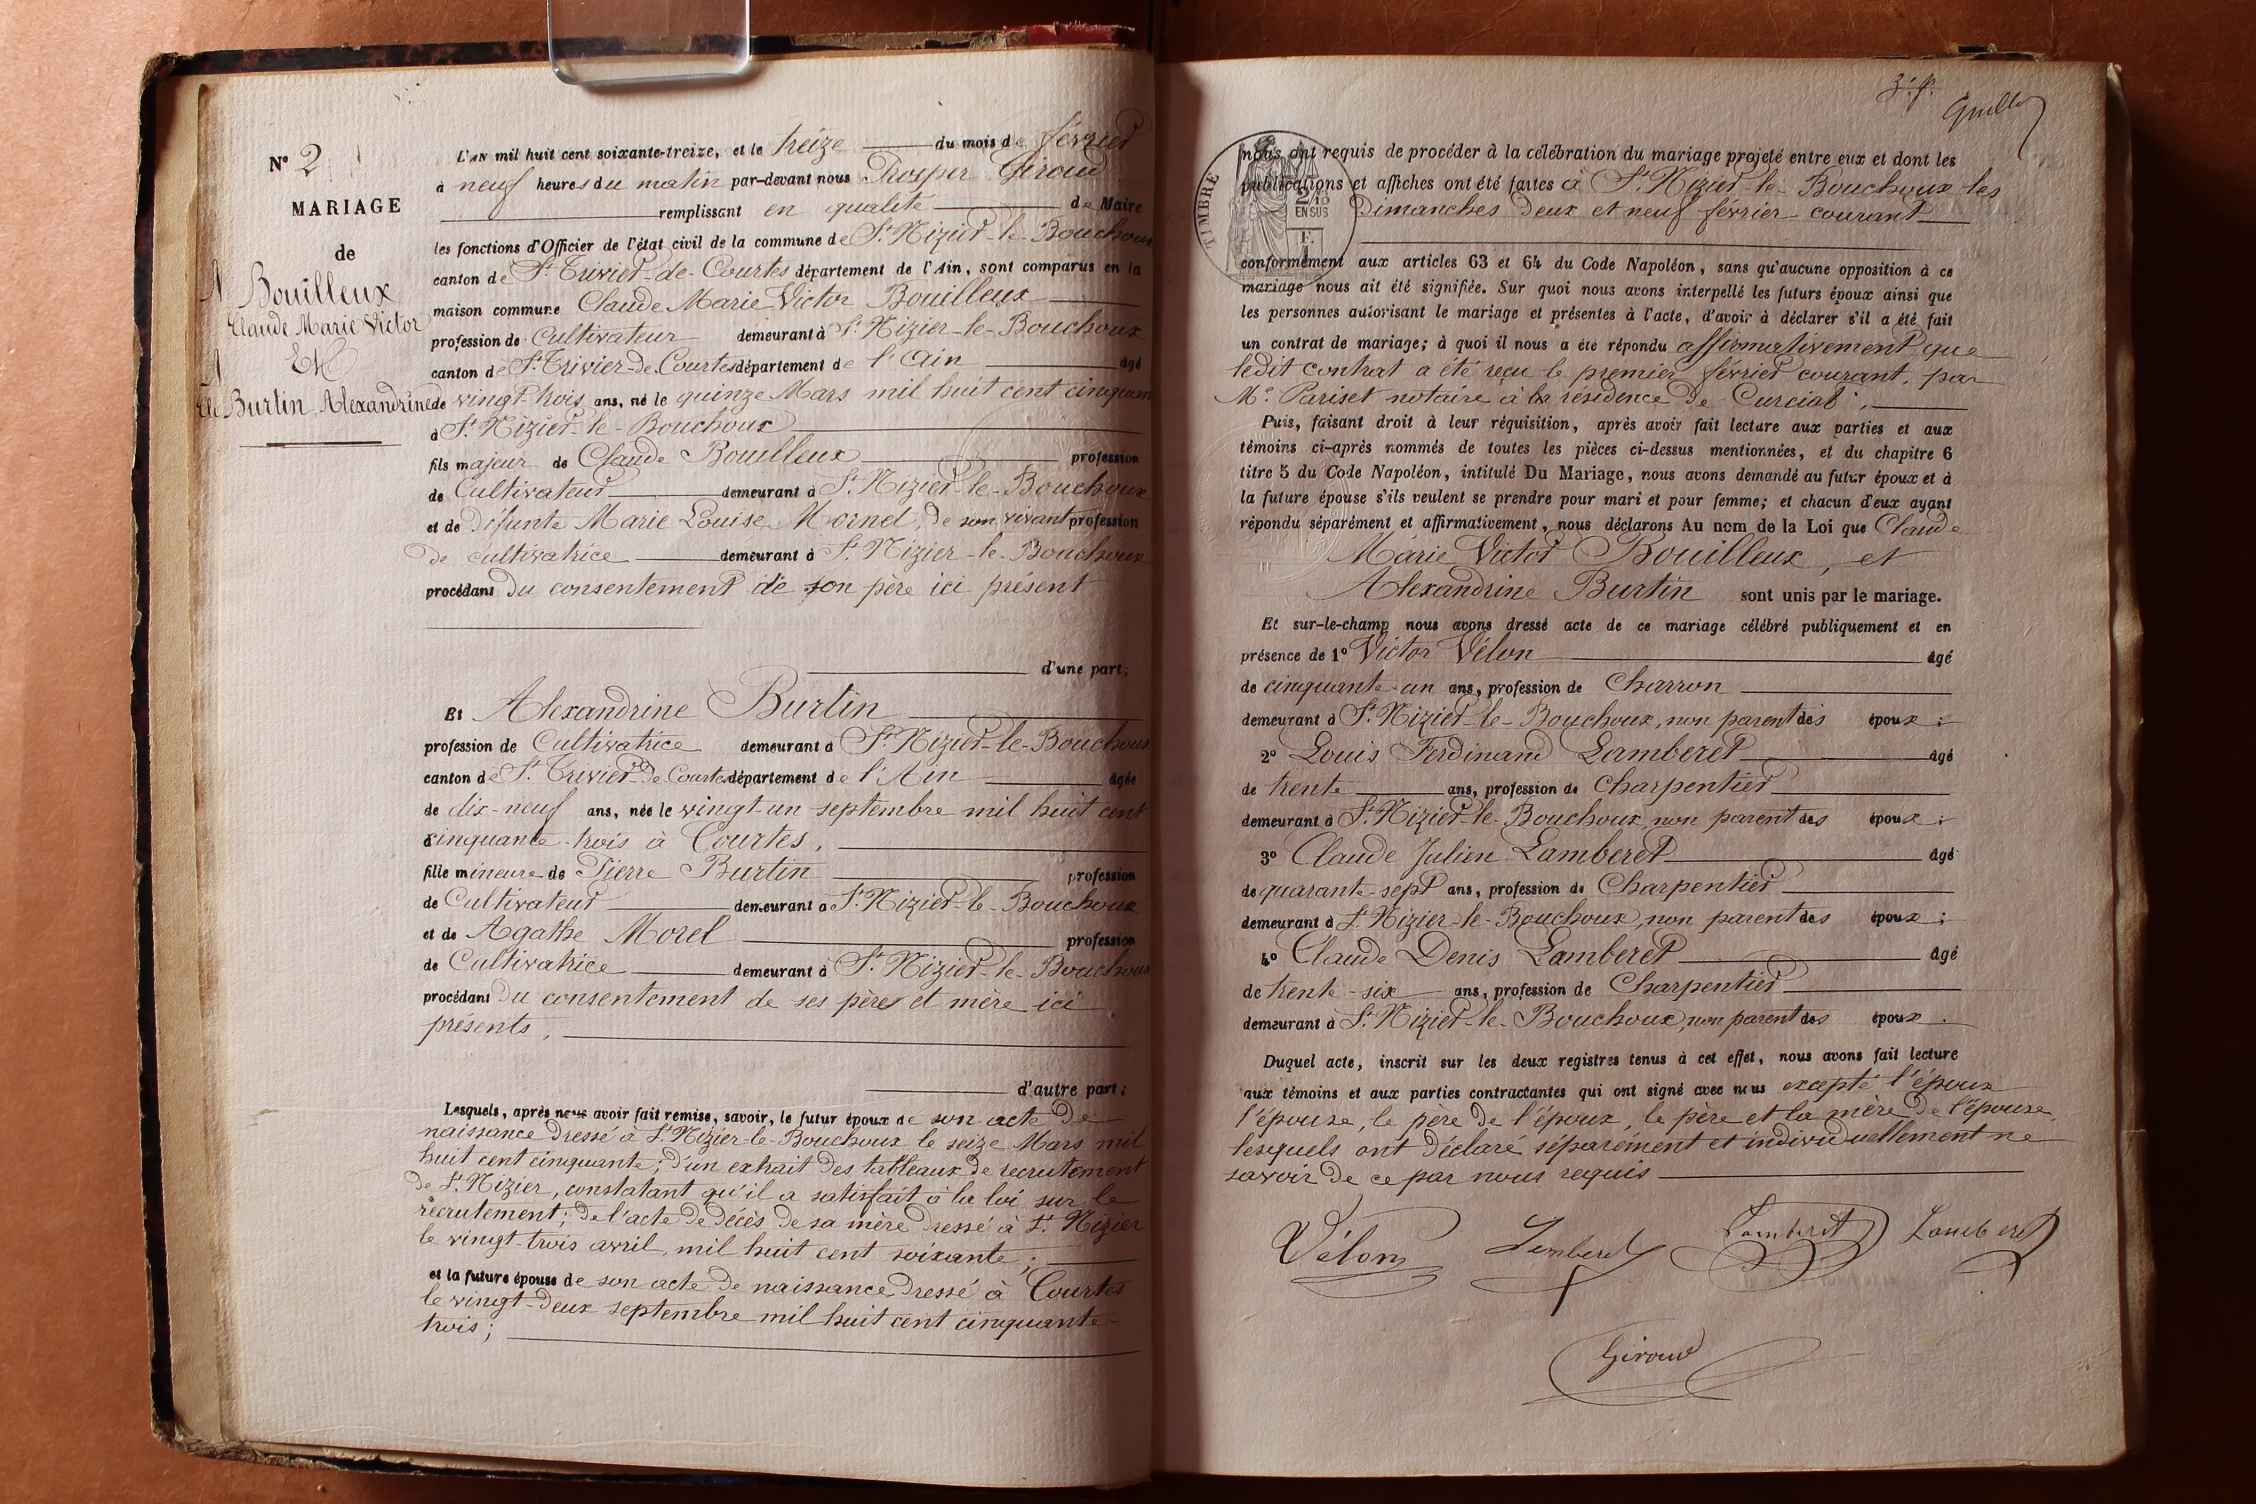 N° 2
MARIAGE
de
Bouilleux
Claude Marie Victor
Et
Burtin Alexandrine
L'AN mil huit cent soixante-treize, et le treize du mois de février
à neuf heures du matin par-devant nous Prosper Giroud
remplissant en qualité de Maire
les fonctions d'Officier de l'état civil de la commune de St. Nizier-le-Bouchoux
canton de St. Trivier-de-Courtes département de l'Ain, sont comparus en la
maison commune Claude Marie Victor Bouilleux
profession de Cultivateur demeurant à St. Nizier-le-Bouchoux
canton de St. Trivier-de-Courtes département de l'Ain âgé
de vingt-trois ans, né le quinze Mars mil huit cent cinquante
à St. Nizier-le-Bouchoux
fils majeur de Claude Bouilleux profession
de Cultivateur demeurant à St. Nizier-le-Bouchoux
et de défunte Marie Louise Mornel, de son vivant profession
de cultivatrice demeurant à St. Nizier-le-Bouchoux
procédant du consentement de son père ici présent
d'une part;
Et Alexandrine Burtin
profession de Cultivatrice demeurant à St. Nizier-le-Bouchoux
canton de St. Trivier-de-Courtes département de l'Ain âgée
de dix-neuf ans, née le vingt-un septembre mil huit cent
cinquante-trois à Courtes,
fille mineure de Pierre Burtin profession
de Cultivateur demeurant à St. Nizier-le-Bouchoux
et de Agathe Morel profession
de Cultivatrice demeurant à St. Nizier-le-Bouchoux
procédant du consentement de ses père et mère ici
présents,
d'autre part;
Lesquels, après nous avoir fait remise, savoir, le futur époux de son acte de
naissance dressé à St. Nizier-le-Bouchoux le seize Mars mil
huit cent cinquante; d'un extrait des tableaux de recrutement
de St. Nizier, constatant qu'il a satisfait à la loi sur le
recrutement; de l'acte de décès de sa mère dressé à St. Nizier
le vingt-trois avril, mil huit cent soixante;
et la future épouse de son acte de naissance dressé à Courtes
le vingt-deux septembre mil huit cent cinquante-
trois;
TIMBRE
2/10
EN SUS
nous ont requis de procéder à la célébration du mariage projeté entre eux et dont les
publications et affiches ont été faites à St. Nizier-le-Bouchoux les
Dimanches deux et neuf février courant
conformément aux articles 63 et 64 du Code Napoléon, sans qu'aucune opposition à ce
mariage nous ait été signifiée. Sur quoi nous avons interpellé les futurs époux ainsi que
les personnes autorisant le mariage et présentes à l'acte, d'avoir à déclarer s'il a été fait
un contrat de mariage; à quoi il nous a été répondu affirmativement que
ledit contrat a été reçu le premier février courant, par
Me. Pariset notaire à la résidence de Curciat,
Puis, faisant droit à leur réquisition, après avoir fait lecture aux parties et aux
témoins ci-après nommés de toutes les pièces ci-dessus mentionnées, et du chapitre 6
titre 5 du Code Napoléon, intitulé Du Mariage, nous avons demandé au futur époux et à
la future épouse s'ils veulent se prendre pour mari et pour femme; et chacun d'eux ayant
répondu séparément et affirmativement, nous déclarons Au nom de la Loi que Claude
Marie Victor Bouilleux, et
Alexandrine Burtin sont unis par le mariage.
Et sur-le-champ nous avons dressé acte de ce mariage célébré publiquement et en
présence de 1° Victor Vélon âgé
de cinquante-un ans, profession de Charron
demeurant à St. Nizier-le-Bouchoux, non parent des époux;
2° Louis Ferdinand Lamberet âgé
de trente ans, profession de Charpentier
demeurant à St. Nizier-le-Bouchoux, non parent des époux;
3° Claude Julien Lamberet âgé
de quarante-sept ans, profession de Charpentier
demeurant à St. Nizier-le-Bouchoux, non parent des époux;
4° Claude Denis Lamberet âgé
de trente-six ans, profession de Charpentier
demeurant à St. Nizier-le-Bouchoux, non parent des époux.
Duquel acte, inscrit sur les deux registres tenus à cet effet, nous avons fait lecture
aux témoins et aux parties contractantes qui ont signé avec nous excepté l'époux
l'épouse, le père de l'époux, le père et la mère de l'épouse
lesquels ont déclaré séparément et individuellement ne
savoir de ce par nous requis
Vélon Lamberet Lamberet Lamberet
Giroud